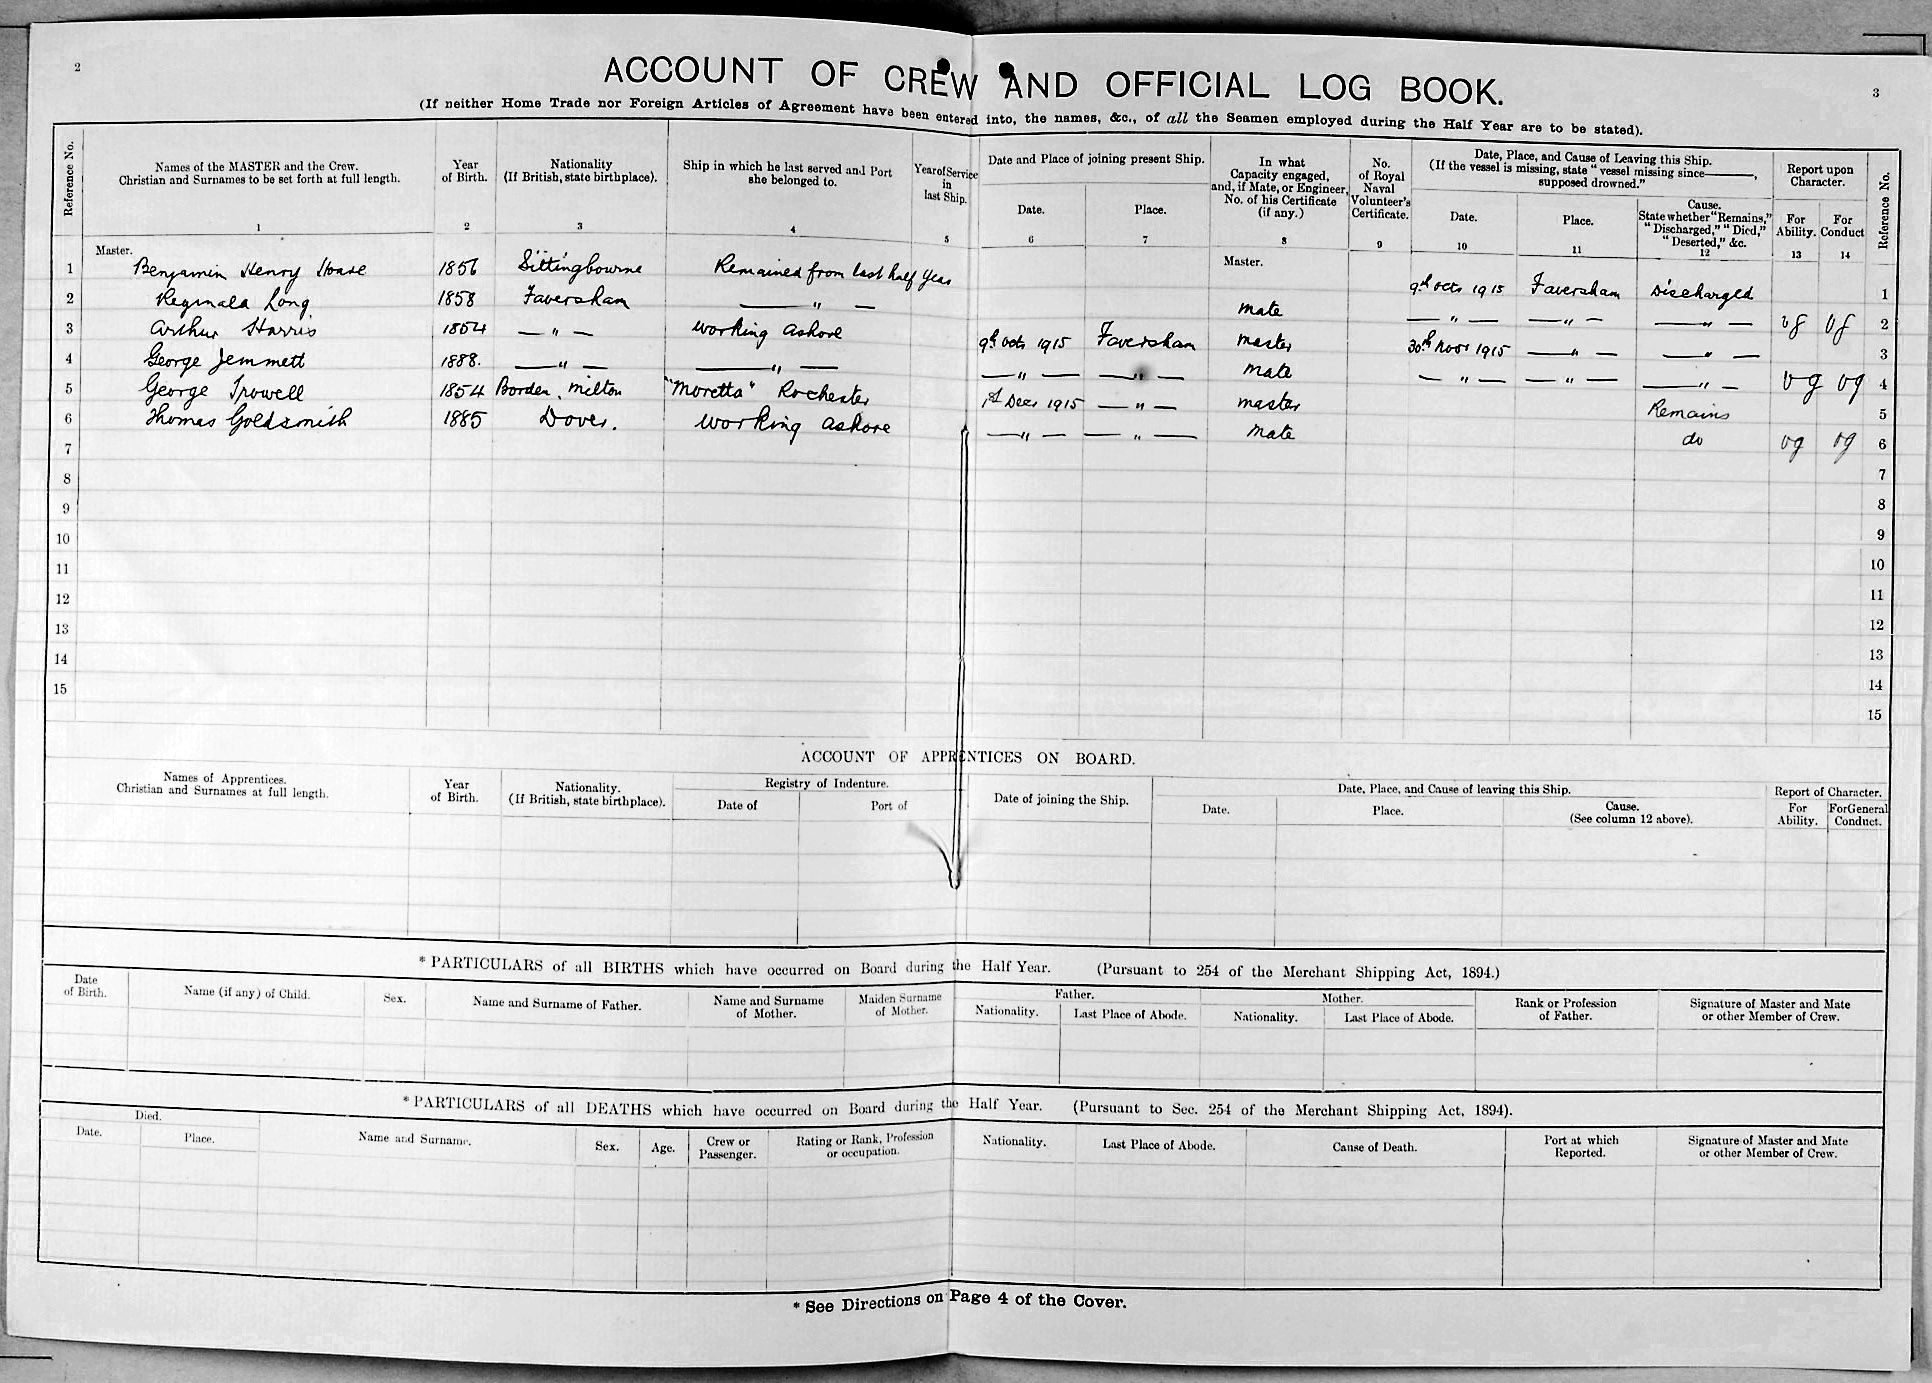 2
3
ACCOUNT OF CREW AND OFFICIAL LOG BOOK.
(If neither Home Trade nor Foreign Articles of Agreement have been entered into, the names, &c., of all the Seamen employed during the Half Year are to be stated).
Reference No. Names of the MASTER and the Crew. Christian and Surnames to be set forth at full length. Year of Birth. Nationality (If British, state birthplace). Ship in which he last served and Port she belonged to. Year of Service in last Ship. Date and Place of joining present Ship. Date. Place. In what Capacity engaged, and, if Mate, or Engineer, No. of his Certificate (if any.) No. of Royal Naval Volunteer's Certificate. Date, Place, and Cause of Leaving this Ship. (If the vessel is missing, state "vessel missing since———, supposed drowned." Date. Place. Cause. State whether "Remains," "Discharged," "Died," "Deserted," &c. Report upon Character. For Ability. For Conduct Reference No.
1 2 3 4 5 6 7 8 9 10 11 12 13 14
Master. Master.
1 Benjamin Henry Hoare 1856 Sittingbourne Remained from last half year 9th Octr 1915 Faversham Discharged 1
2 Reginald Long 1858 Faversham — " — mate — " — — " — — " — vg vg 2
3 Arthur Harris 1854 — " — working ashore 9th Octr 1915 Faversham master 30th Novr 1915 — " — — " — 3
4 George Jemmett 1888. — " — — " — — " — — " — mate — " — — " — — " — vg vg 4
5 George Trowell 1854 Borden, Milton "Moretta" Rochester 1st Decr 1915 — " — master Remains 5
6 Thomas Goldsmith 1885 Dover. working ashore — " — — " — mate do vg vg 6
7 7
8 8
9 9
10 10
11 11
12 12
13 13
14 14
15 15
ACCOUNT OF APPRENTICES ON BOARD.
Names of Apprentices. Christian and Surnames at full length. Year of Birth. Nationality. (If British, state birthplace). Registry of Indenture. Date of Port of Date of joining the Ship. Date, Place, and Cause of leaving this Ship. Date. Place. Cause. (See column 12 above). Report of Character. For Ability. For General Conduct.
* PARTICULARS of all BIRTHS which have occurred on Board during the Half Year. (Pursuant to 254 of the Merchant Shipping Act, 1894.)
Date of Birth. Name (if any) of Child. Sex. Name and Surname of Father. Name and Surname of Mother. Maiden Surname of Mother. Father. Nationality. Last Place of Abode. Mother. Nationality. Last Place of Abode. Rank or Profession of Father. Signature of Master and Mate or other Member of Crew.
* PARTICULARS of all DEATHS which have occurred on Board during the Half Year. (Pursuant to Sec. 254 of the Merchant Shipping Act, 1894).
Died. Date. Place. Name and Surname. Sex. Age. Crew or Passenger. Rating or Rank, Profession or occupation. Nationality. Last Place of Abode. Cause of Death. Port at which Reported. Signature of Master and Mate or other Member of Crew.
* See Directions on Page 4 of the Cover.